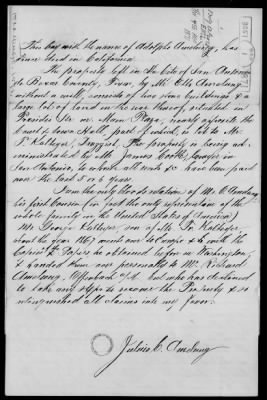 This boy with the name of Adolpho Amelung, has
once lived in California.
The property left in the City of San Antonio
de Bexar County, Texas, by Mr. Ellis Amelung
without a will, consists of two stone buildings & a
large lot of land in the rear thereof, situated in
Presidio Str. or Main Plaza, nearly opposite the
Court & town Hall, part of which, is let to Mr.
F. Kalteyer, Druggist. The property is being ad-
ministrated by Mr. James Lawyer in
San Antonio, to whom all rents &c have been paid
over the last 5 or 6 years.
I am the only blood relation of Mr. E. Amelung
(his first Cousin & just the only representation of the
whole family in the United States of America)
Mr. George Kalteyer, son of Mr. Fr. Kalteyer,
about the year 1867 went over to Europe & with the
Copies of Papers he obtained before in Washington
& handed them over personally to Mr. Richard
Amelung, Offenbach a/M. but who has declined
to take any steps to recover the Property & so
relinquished all claims into my favor.
Julius C. Amelung